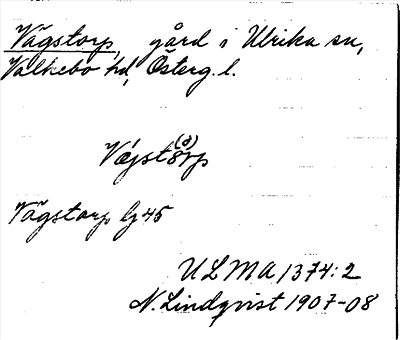 Vägstorp, gård i Ulrika sn,
Valkebo hd, Österg. l.
Väjst(å)rp
Vägstorp Gj 45
ULMA 1374:2
N. Lindqvist 1907-08